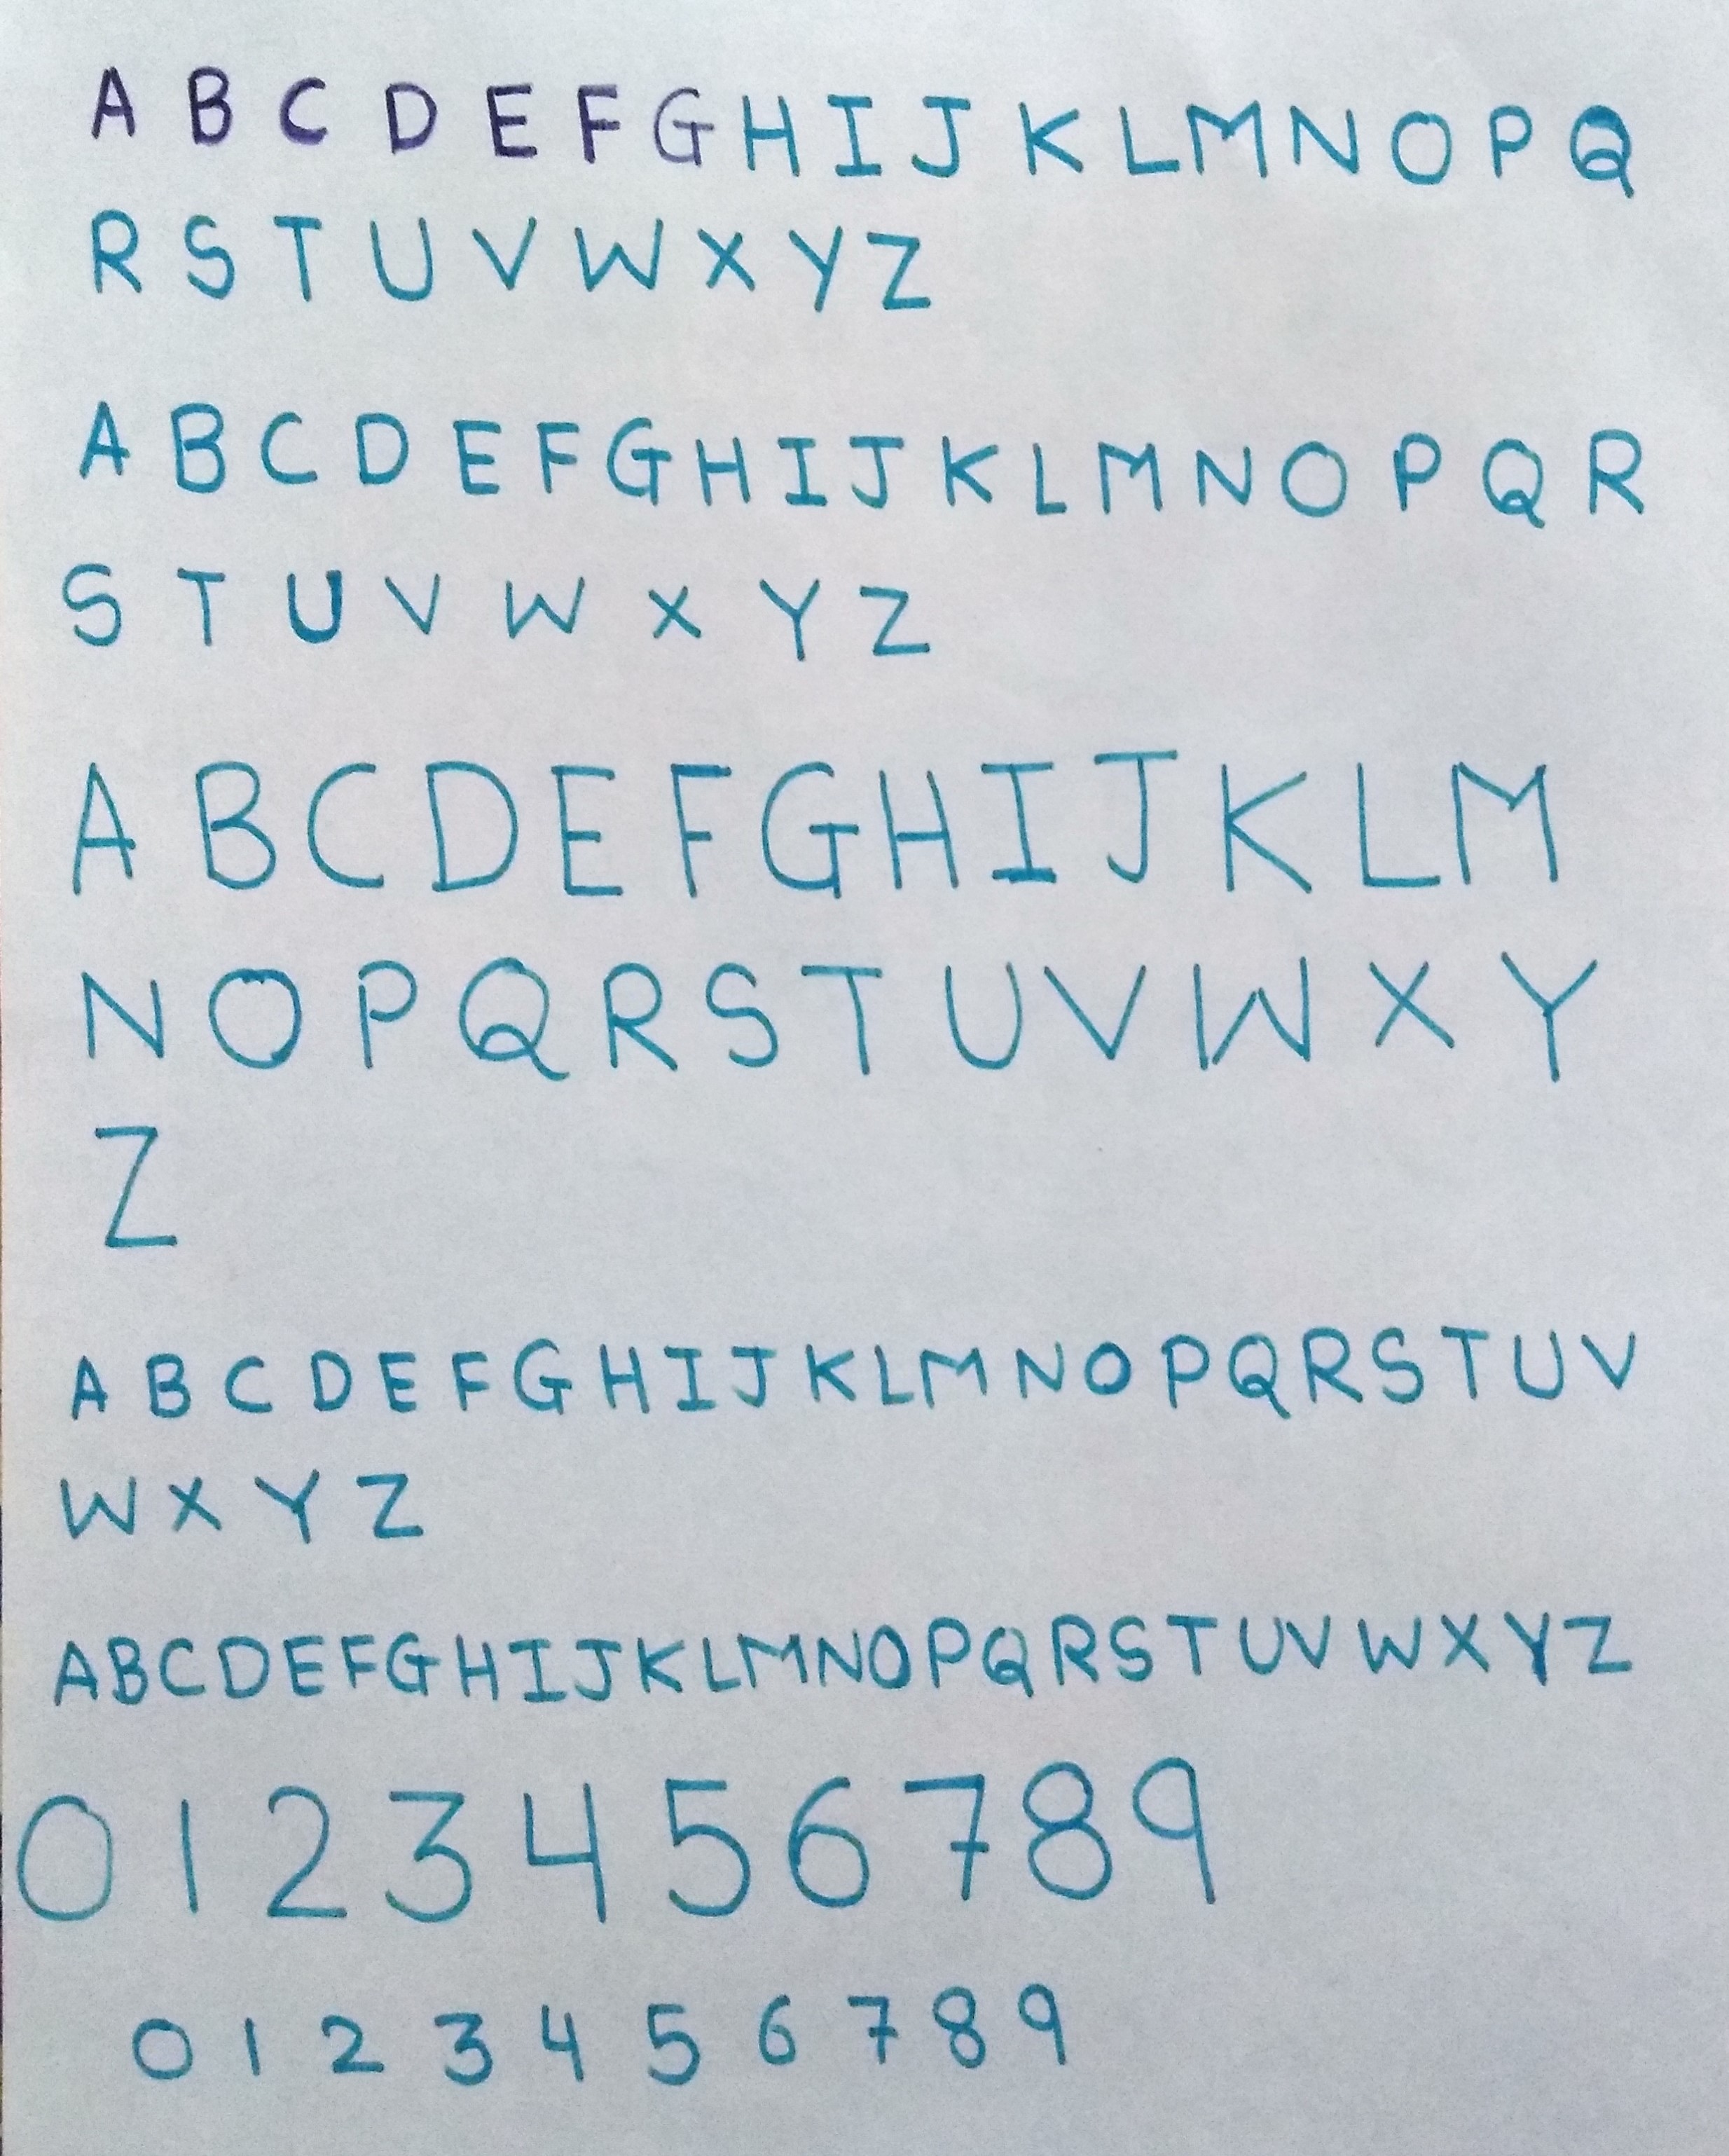 A B C D E F G H I J K L M N O P Q
R S T U V W X Y Z
A B C D E F G H I J K L M N O P Q R
S T U V W X Y Z
A B C D E F G H I J K L M
N O P Q R S T U V W X Y
Z
A B C D E F G H I J K L M N O P Q R S T U V
W X Y Z
A B C D E F G H I J K L M N O P Q R S T U V W X Y Z
0 1 2 3 4 5 6 7 8 9
0 1 2 3 4 5 6 7 8 9